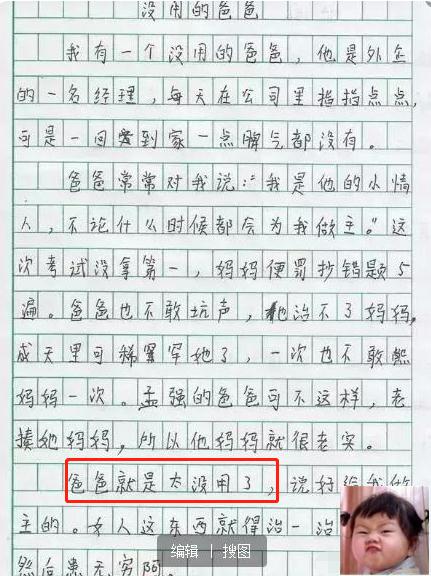 没用的爸爸
我有一个没用的爸爸，他是外企
的一名经理，每天在公司里指指点点，
可是一回到家一点脾气都没有。
爸爸常常对我说：“我是他的小情
人，不论什么时候都会为我做主。”这
次考试没拿第一，妈妈便罚抄错题5
遍。爸爸也不敢坑声，他治不了妈妈，
成天里可稀罕她了，一次也不敢熊
妈妈一次。孟强的爸爸可不这样，老
揍她妈妈，所以他妈妈就很老实。
爸爸就是太没用了，说好给我做
主的。女人这东西就得治一治，
然后患无穷阿。
编辑 | 搜图